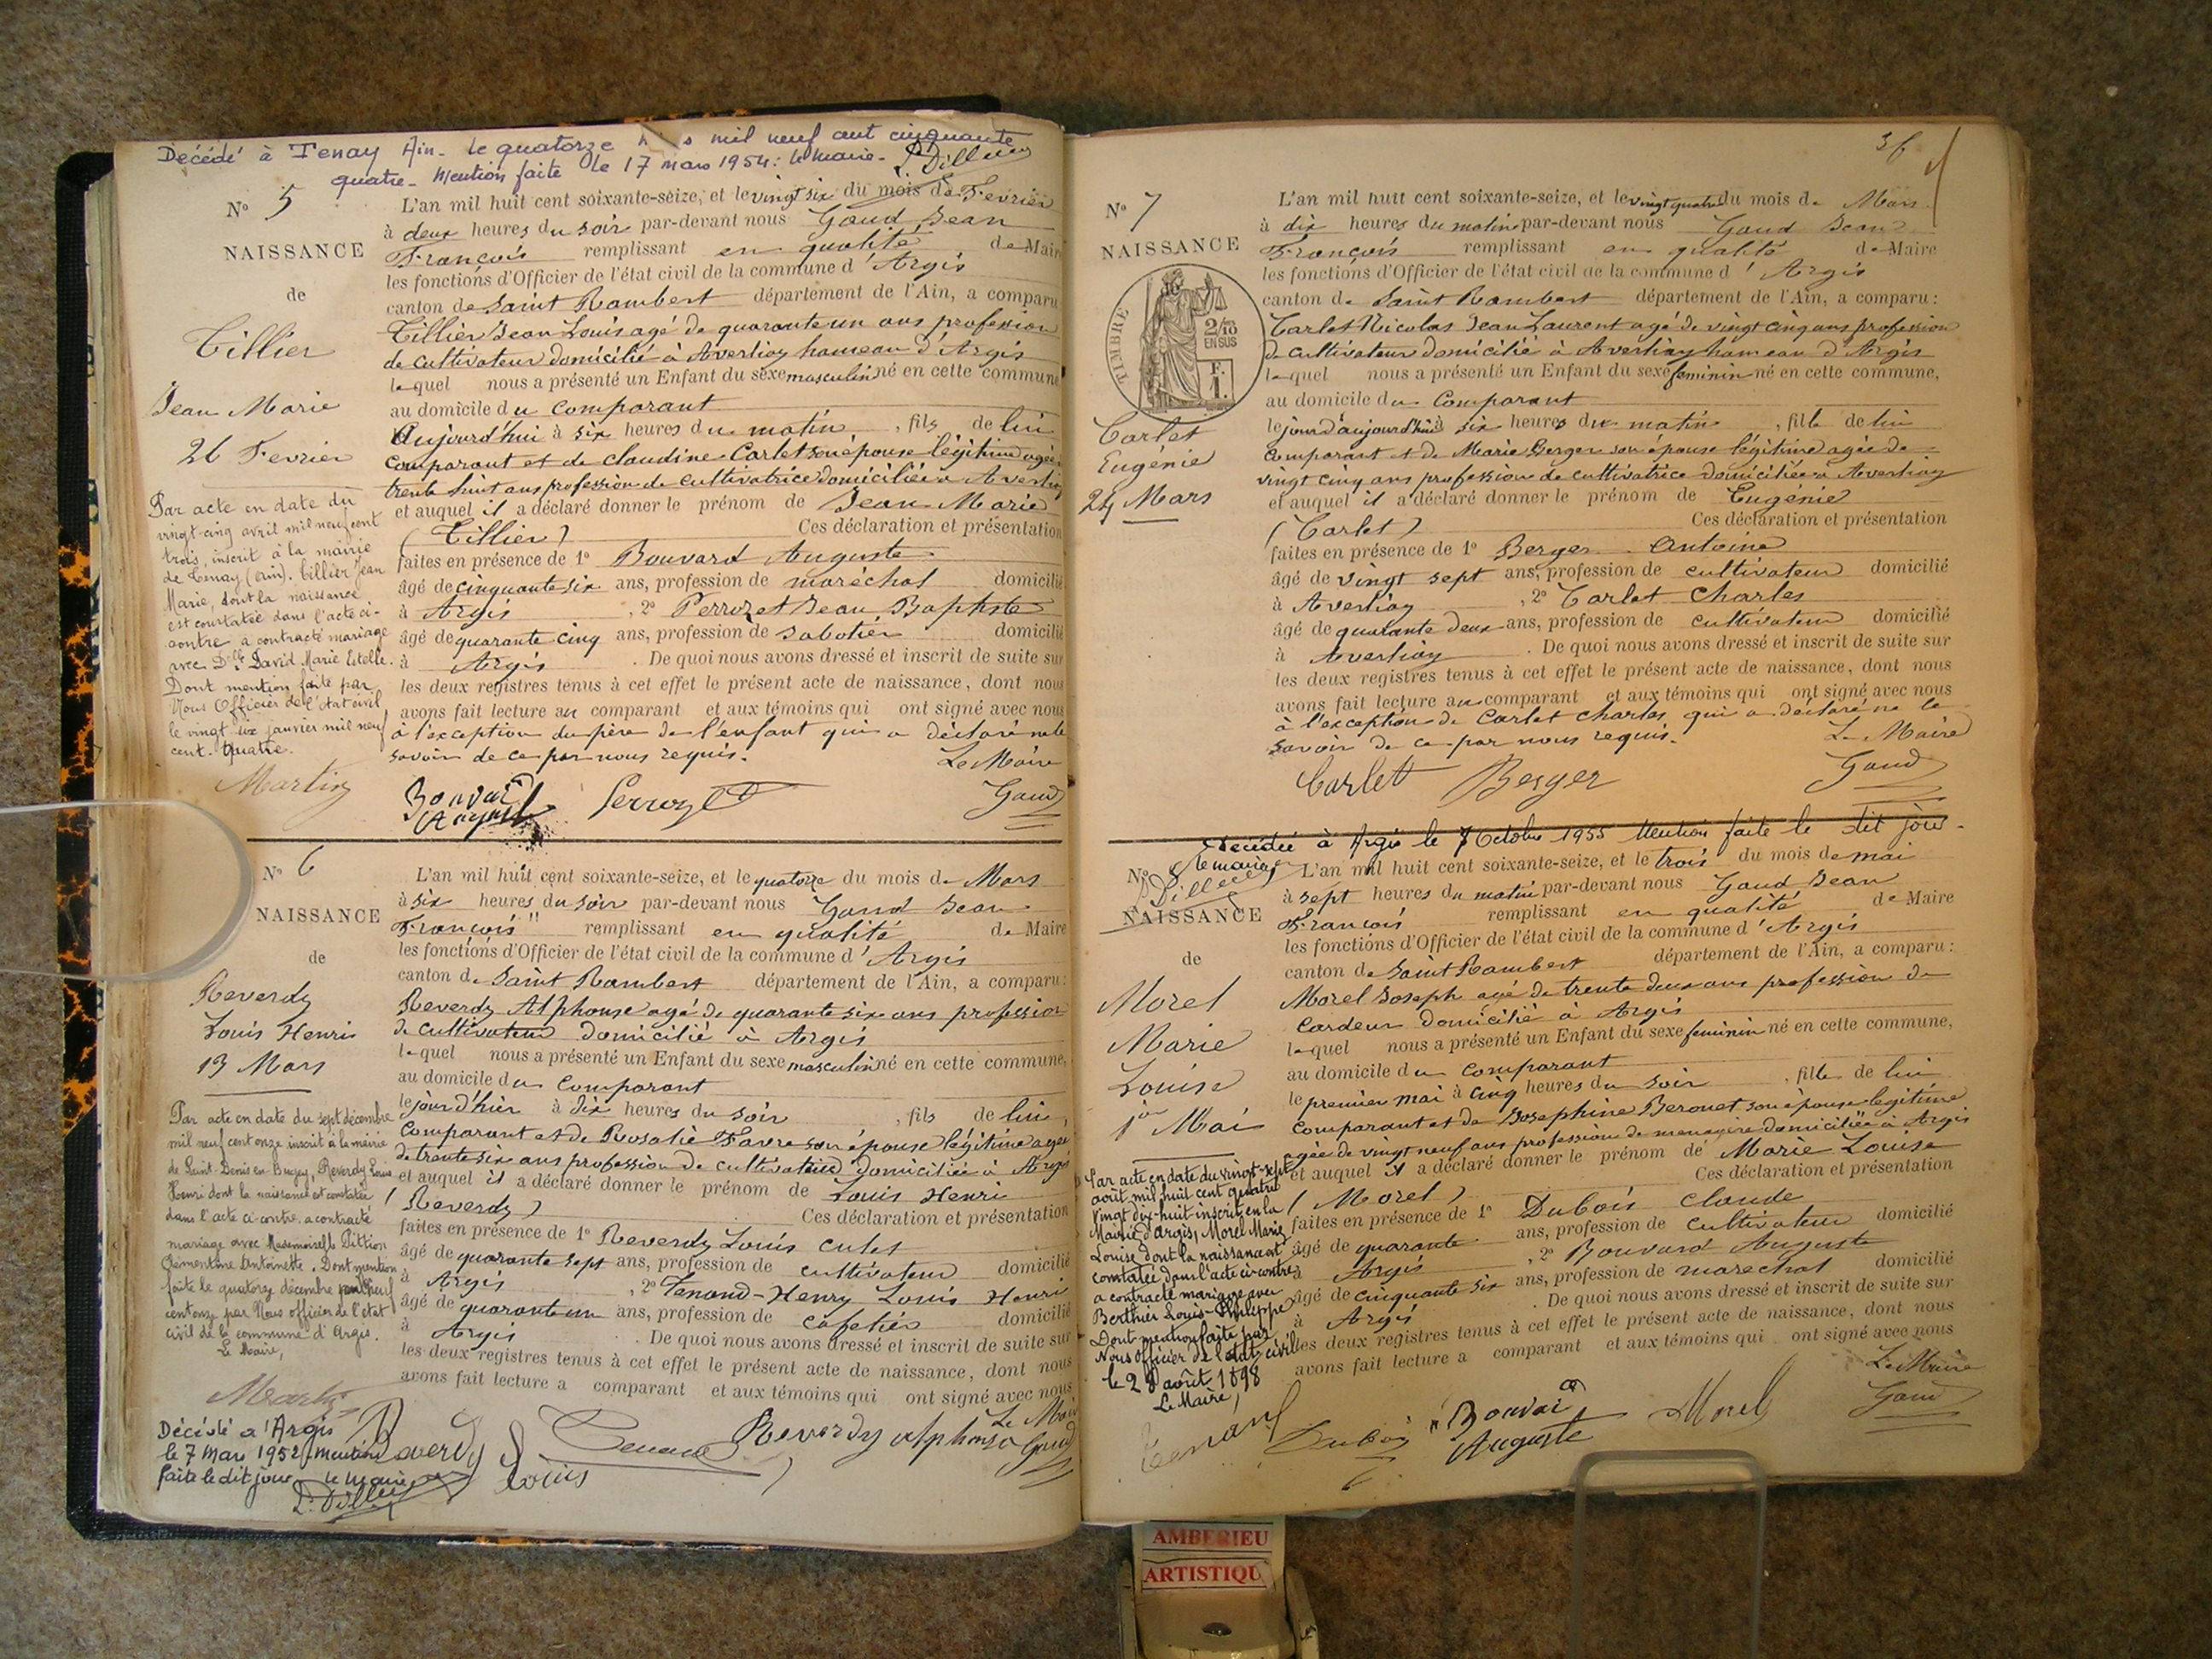 Décédé à Tenay Ain. le quatorze mil neuf cent cinquante
quatre. Mention faite le 17 mars 1954: le maire. P. Dilleux
N° 5
NAISSANCE
de
Tillier
Jean Marie
26 Fevrier
Par acte en date du
vingt-cinq avril mil neuf cent
trois, inscrit à la mairie
de Tenay (Ain). Tillier Jean
Marie, dont la naissance
est constatée dans l'acte ci-
contre a contracté mariage
avec Dlle David Marie Estelle.
Dont mention faite par
Nous Officier de l'état civil
le vingt six janvier mil neuf
cent quatre.
Martin
L'an mil huit cent soixante-seize, et le vingt six du mois de Fevrier
à deux heures du soir par-devant nous Gaud Jean
François remplissant en qualité de Maire
les fonctions d'Officier de l'état civil de la commune d'Argis
canton de Saint Rambert département de l'Ain, a comparu
Tillier Jean Louis agé de quarante un ans profession
de cultivateur domicilié à Averliaz hameau d'Argis
lequel nous a présenté un Enfant du sexe masculin né en cette commune
au domicile du comparant
Aujourd'hui à six heures du matin, fils de lui
comparant et de Claudine Carlet son épouse légitime agée
trente huit ans profession de cultivatrice domiciliée à Averliaz
et auquel il a déclaré donner le prénom de Jean Marie
(Tillier) Ces déclaration et présentation
faites en présence de 1° Bouvard Auguste
âgé de cinquante six ans, profession de maréchal domicilié
à Argis, 2° Perrozet Jean Baptiste
âgé de quarante cinq ans, profession de sabotier domicilié
à Argis. De quoi nous avons dressé et inscrit de suite sur
les deux registres tenus à cet effet le présent acte de naissance, dont nous
avons fait lecture au comparant et aux témoins qui ont signé avec nous
à l'exception du père de l'enfant qui a déclaré ne le
savoir de ce par nous requis. Le Maire
Bouvard Auguste Perrozet Gaud
N° 6
NAISSANCE
de
Reverdy
Louis Henri
13 Mars
Par acte en date du sept décembre
mil neuf cent onze inscrit à la mairie
de Saint Denis en Bugey, Reverdy Louis
Henri dont la naissance est constatée
dans l'acte ci-contre a contracté
mariage avec Mademoiselle Pittion
Clémentine Antoinette. Dont mention
faite le quatorze décembre mil neuf
cent onze par Nous officier de l'état
civil de la commune d'Argis.
Le Maire,
Martin
Décédé à Argis
le 7 Mars 1952 mention
faite le dit jour le maire
P. Dilleux
L'an mil huit cent soixante-seize, et le quatorze du mois de Mars
à six heures du soir par-devant nous Gaud Jean
François remplissant en qualité de Maire
les fonctions d'Officier de l'état civil de la commune d'Argis
canton de Saint Rambert département de l'Ain, a comparu:
Reverdy Alphonse agé de quarante six ans profession
de cultivateur domicilié à Argis
lequel nous a présenté un Enfant du sexe masculin né en cette commune,
au domicile du comparant
le jour d'hier à dix heures du soir, fils de lui,
comparant et de Rosalie Favre son épouse légitime agée
de trente six ans profession de cultivateur domiciliée à Argis
et auquel il a déclaré donner le prénom de Louis Henri
(Reverdy) Ces déclaration et présentation
faites en présence de 1° Reverdy Louis
âgé de quarante sept ans, profession de cultivateur domicilié
à Argis, 2° Tenand-Henry Louis Henri
âgé de quarante un ans, profession de cafetier domicilié
à Argis. De quoi nous avons dressé et inscrit de suite sur
les deux registres tenus à cet effet le présent acte de naissance, dont nous
avons fait lecture a comparant et aux témoins qui ont signé avec nous
Le Maire
Reverdy Louis Tenand Reverdy Alphonse Gaud
36
N° 7
NAISSANCE
TIMBRE
2/10
EN SUS
F.
1.
Carlet
Eugénie
24 Mars
L'an mil huit cent soixante-seize, et le vingt quatre du mois de Mars
à dix heures du matin par-devant nous Gaud Jean
François remplissant en qualité de Maire
les fonctions d'Officier de l'état civil de la commune d'Argis
canton de Saint Rambert département de l'Ain, a comparu:
Carlet Nicolas Jean Laurent agé de vingt cinq ans profession
de cultivateur domicilié à Averliaz hameau d'Argis
lequel nous a présenté un Enfant du sexe feminin né en cette commune,
au domicile du comparant
le jour d'aujourd'hui à six heures du matin, fille de lui
comparant et de Marie Berger son épouse légitime agée de
vingt cinq ans profession de cultivatrice domiciliée à Averliaz
et auquel il a déclaré donner le prénom de Eugénie
(Carlet) Ces déclaration et présentation
faites en présence de 1° Berger Antoine
âgé de vingt sept ans, profession de cultivateur domicilié
à Averliaz, 2° Carlet Charles
âgé de quarante deux ans, profession de cultivateur domicilié
à Averliaz. De quoi nous avons dressé et inscrit de suite sur
les deux registres tenus à cet effet le présent acte de naissance, dont nous
avons fait lecture au comparant et aux témoins qui ont signé avec nous
à l'exception de Carlet Charles qui a déclaré ne le
savoir de ce par nous requis. Le Maire
Carlet Berger Gaud
Décédée à Argis le 7 Octobre 1955 Mention faite le dit jour.
le maire
P. Dilleux
N°
NAISSANCE
de
Morel
Marie
Louise
1er Mai
Par acte en date du vingt-sept
août mil huit cent quatre
vingt dix-huit inscrit en la
Mairie d'Argis, Morel Marie
Louise dont la naissance est
constatée dans l'acte ci-contre
a contracté mariage avec
Berthier Louis-Philippe
Dont mention faite par
Nous officier de l'état civil
le 28 août 1898
Le Maire,
Tenand
L'an mil huit cent soixante-seize, et le trois du mois de mai
à sept heures du matin par-devant nous Gaud Jean
François remplissant en qualité de Maire
les fonctions d'Officier de l'état civil de la commune d'Argis
canton de Saint Rambert département de l'Ain, a comparu:
Morel Joseph agé de trente deux ans profession de
cardeur domicilié à Argis
lequel nous a présenté un Enfant du sexe feminin né en cette commune,
au domicile du comparant
le premier mai à cinq heures du soir, fille de lui
comparant et de Josephine Berouet son épouse legitime
agée de vingt neuf ans profession de menagère domiciliée à Argis
et auquel il a déclaré donner le prénom de Marie Louise
(Morel) Ces déclaration et présentation
faites en présence de 1° Dubois Claude
âgé de quarante ans, profession de cultivateur domicilié
à Argis, 2° Bouvard Auguste
âgé de cinquante six ans, profession de marechal domicilié
à Argis. De quoi nous avons dressé et inscrit de suite sur
les deux registres tenus à cet effet le présent acte de naissance, dont nous
avons fait lecture a comparant et aux témoins qui ont signé avec nous
Le Maire
Dubois Bouvard Auguste Morel Gaud
AMBERIEU
ARTISTIQU